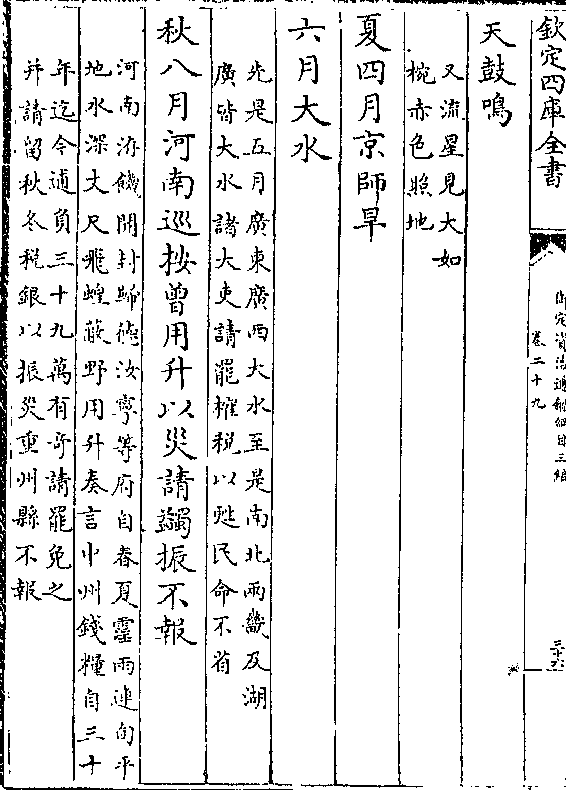 欽定四庫全書
御定資治通鑑綱目三編
卷二十九
三十六
天鼓鳴
又流星見大如
椀赤色照地
夏四月京師旱
六月大水
先是五月廣東廣西大水至是南北兩畿及湖
廣皆大水諸大吏請罷榷税以甦民命不省
秋八月河南巡按曾用升以災請蠲振不報
河南洊饑開封歸德汝寧等府自春夏霪雨連旬平
地水深丈尺飛蝗蔽野用升奏言中州錢糧自三十
年迄今逋負三十九萬有奇請罷免之
并請留秋冬税銀以振災重州縣不報